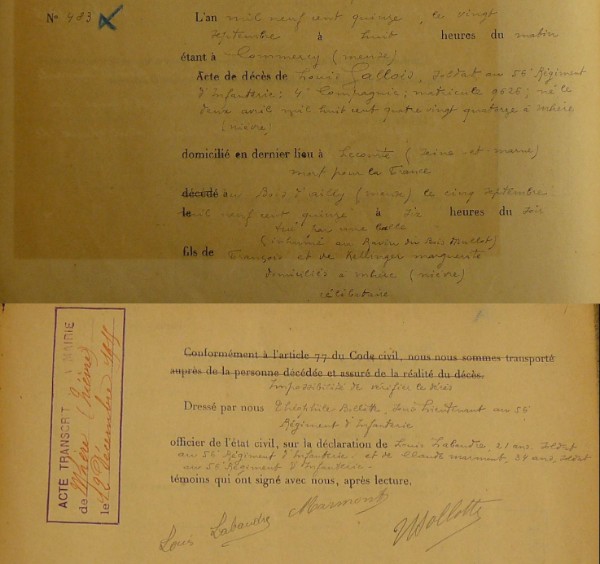 N° 483 L'an mil neuf cent quinze, le vingt
septembre à huit heures du matin
étant à Commercy (meuse)
Acte de décès de Louis Gallois, soldat au 56e Régiment
d'Infanterie; 4e Compagnie; matricule 9626; né le
deux avril mil huit cent quatre vingt quatorze à
(nièvre)
domicilié en dernier lieu à (Seine-et-marne)
mort pour la France
décédé au Bois d'ailly (meuse) le cinq septembre
le mil neuf cent quinze à six heures du soir
tué par une balle
(inhumé au Ravin du Bois Mullot)
fils de François et de Kellinger marguerite
domiciliés à (nièvre)
célibataire
Conformément à l'article 77 du Code civil, nous nous sommes transporté
auprès de la personne décédée et assuré de la réalité du décès.
Impossibilité de vérifier le décès
Dressé par nous Théophile Sous Lieutenant au 56e
Régiment d'Infanterie
officier de l'état civil, sur la déclaration de Louis Labaudre, 21 ans, soldat
au 56e Régiment d'Infanterie - et de Claude marmont, 34 ans, soldat
au 56e Régiment d'Infanterie -
témoins qui ont signé avec nous, après lecture,
Louis Labaudre Marmont
ACTE TRANSCRIT A MAIRIE
de (Nièvre)
le 12 Décembre